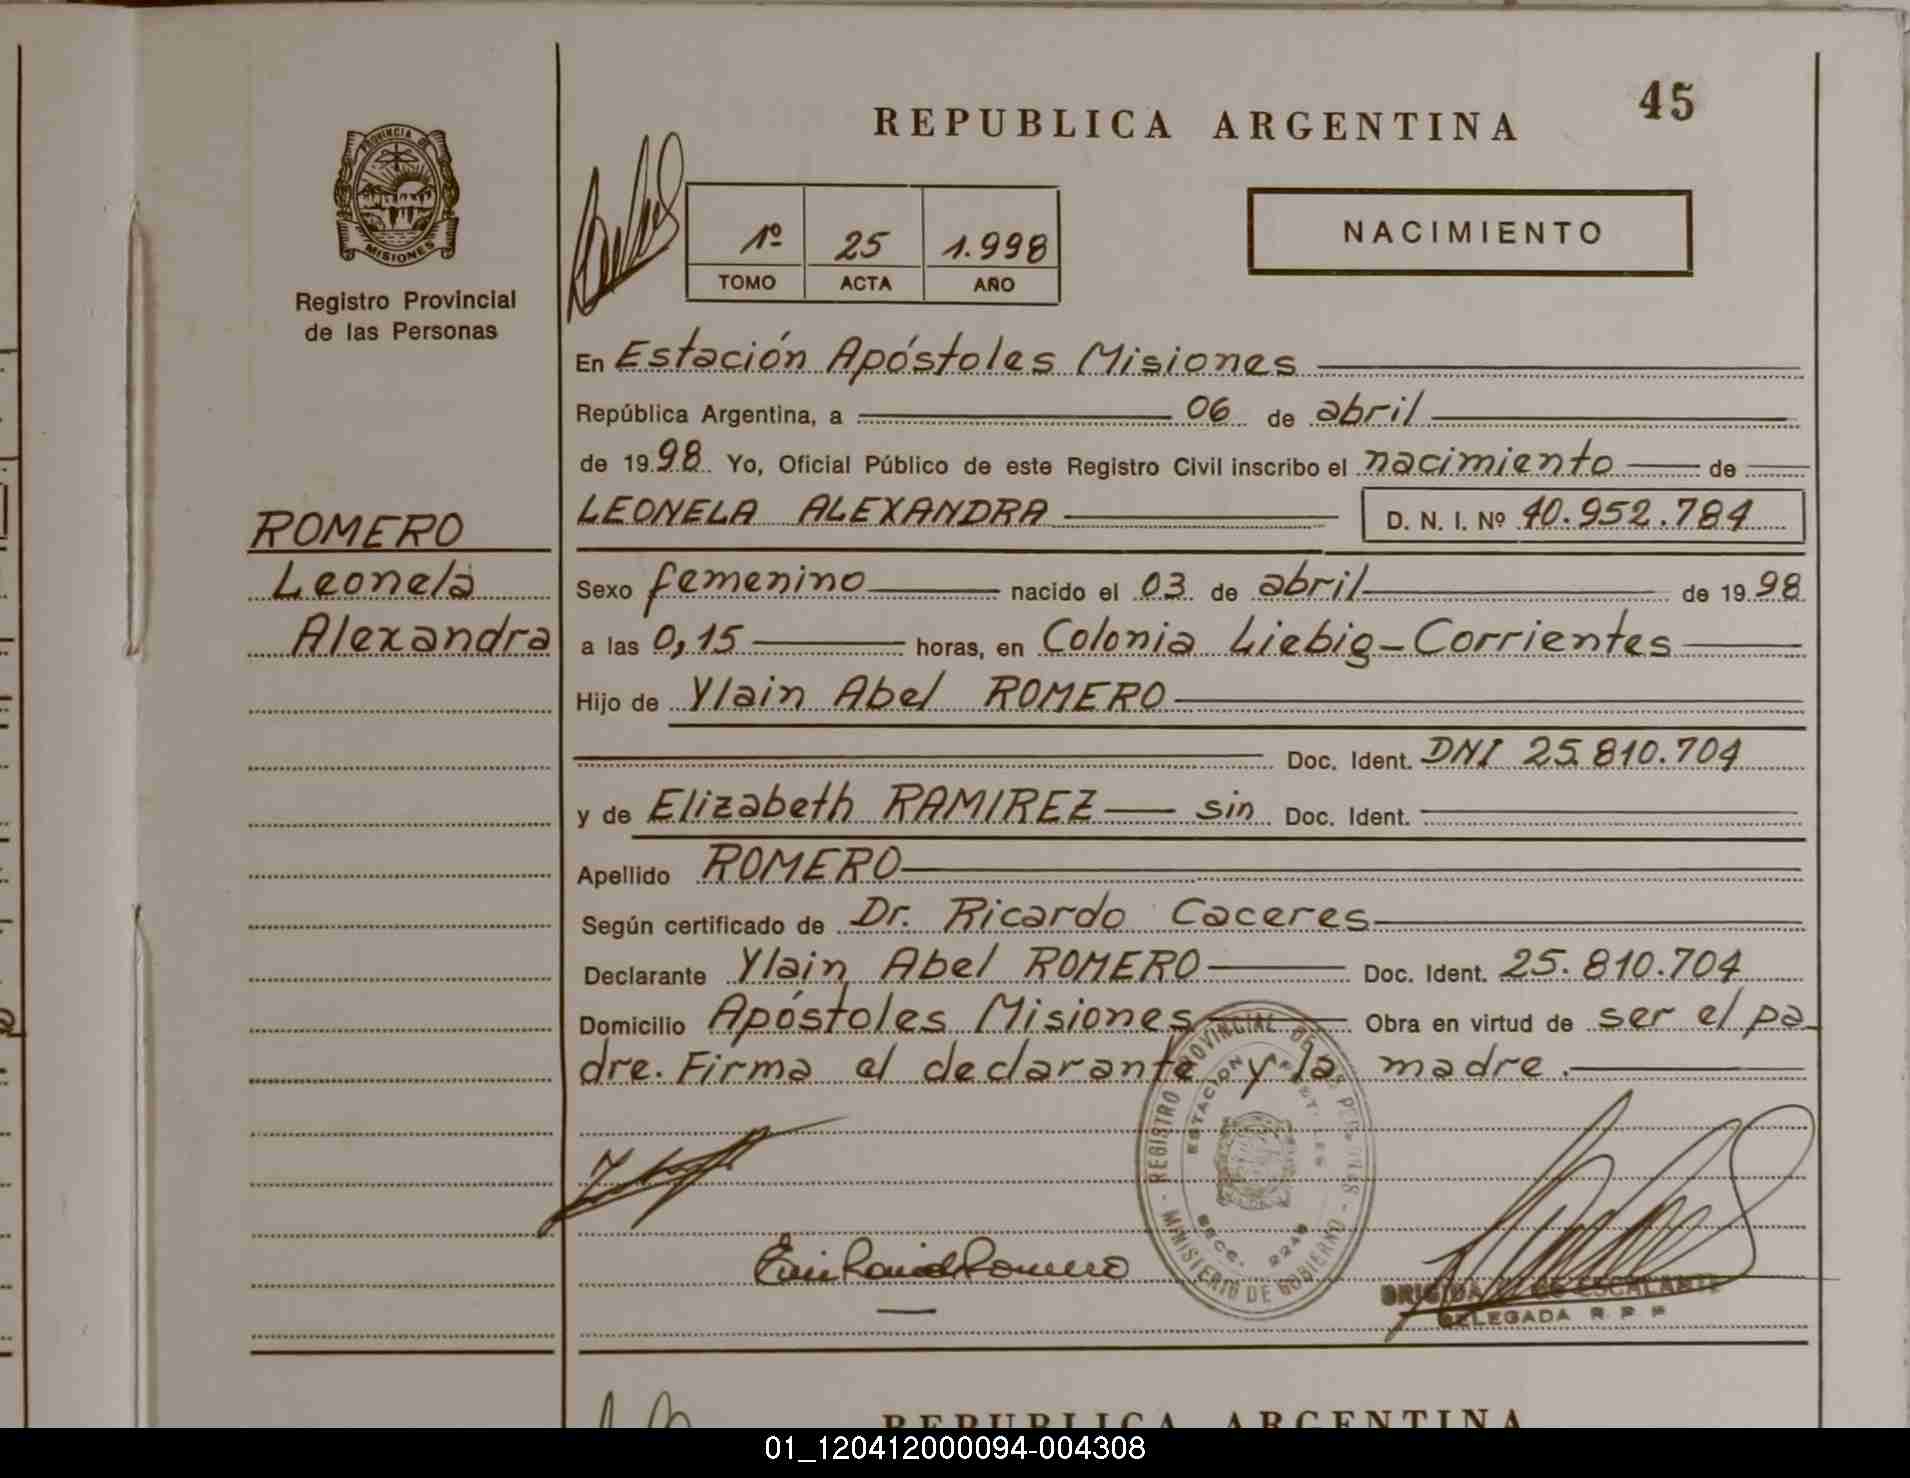 45
REPUBLICA ARGENTINA
PROVINCIA DE
MISIONES
Registro Provincial
de las Personas
1º 25 1.998
TOMO ACTA AÑO
NACIMIENTO
En Estación Apóstoles Misiones
República Argentina, a 06 de abril
de 1998 Yo, Oficial Público de este Registro Civil inscribo el nacimiento de
LEONELA ALEXANDRA D. N. I. Nº 40.952.784
ROMERO
Leonela
Alexandra
Sexo femenino nacido el 03 de abril de 1998
a las 0,15 horas, en Colonia Liebig-Corrientes
Hijo de Ylain Abel ROMERO
Doc. Ident. DNI 25.810.704
y de Elizabeth RAMIREZ sin Doc. Ident.
Apellido ROMERO
Según certificado de Dr. Ricardo Caceres
Declarante Ylain Abel ROMERO Doc. Ident. 25.810.704
Domicilio Apóstoles Misiones Obra en virtud de ser el pa
dre. Firma el declarante y la madre.
REGISTRO PROVINCIAL DE LAS PERSONAS - MINISTERIO DE GOBIERNO -
ESTACION APOSTOLES
SECC. 2249
DE ESCALANTE
DELEGADA R P P
REPUBLICA ARGENTINA
01_120412000094-004308